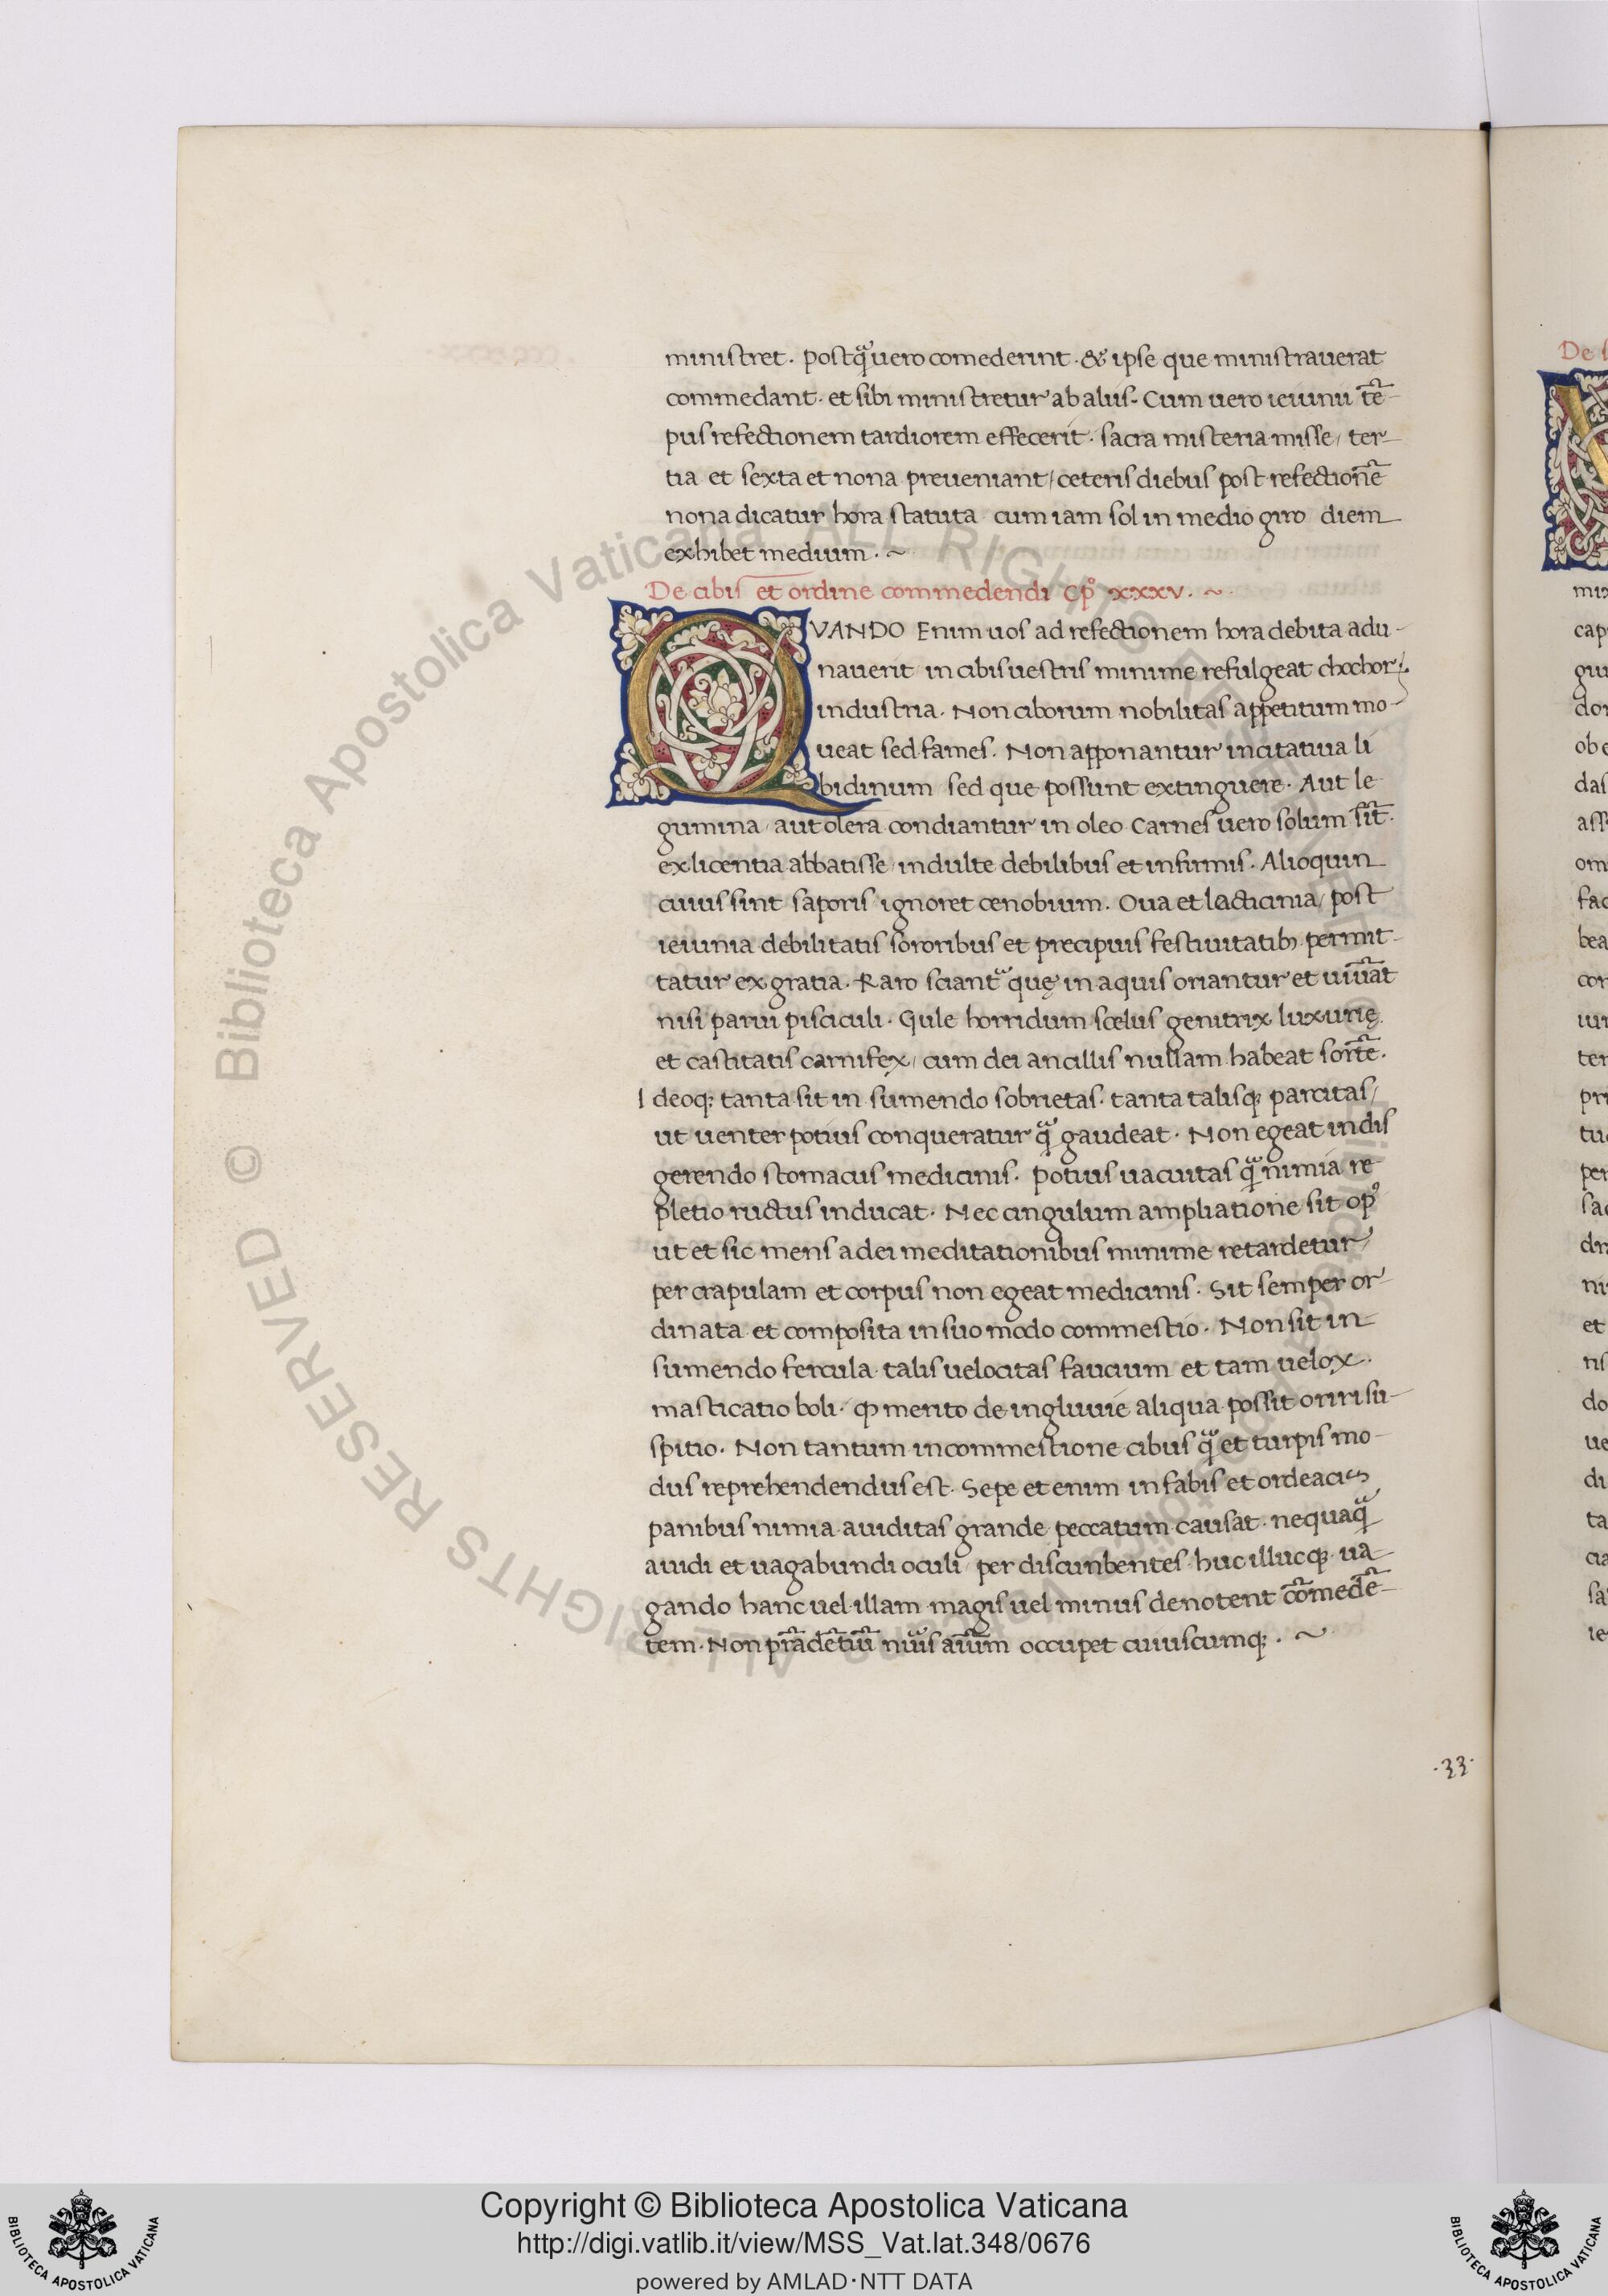 ministret. postq̃ uero comederint. & ipse que ministrauerat
commedant. et sibi ministretur ab aliis. Cum uero ieiunii tẽ-
pus refectionem tardiorem effecerit. sacra misteria misse, ter-
tia et sexta et nona preueniant, ceteris diebus post refectionẽ
nona dicatur hora statuta cum iam sol in medio giro diem
exhibet medium. ~
De cibis et ordine commedendi Cp̊ xxxv. ~
QVANDO Enim uos ad refectionem hora debita adu-
nauerit in cibis uestris minime refulgeat chochor
industria. Non ciborum nobilitas appetitum mo-
ueat sed fames. Non apponantur incitatiua li
bidinum sed que possunt extinguere. Aut le
gumina, aut olera condiantur in oleo Carnes uero solum sĩt.
ex licentia abbatisse, indulte debilibus et infirmis. Alioquin
cuius sint saporis ignoret cenobium. Oua et lacticinia, post
ieiunia debilitatis sororibus et precipuis festiuitatibꝫ permit-
tatur ex gratia. Raro sciant̃ quę in aquis oriantur et uiuãt
nisi parui pisciculi. Gule horridum scelus genitrix luxurię
et castitatis carnifex, cum dei ancillis nullam habeat sortẽ.
Ideoqꝫ tanta sit in sumendo sobrietas. tanta talisqꝫ parcitas,
ut uenter potius conqueratur q̃ gaudeat. Non egeat indis
gerendo stomacus medicinis. potius uacuitas q̃ nimia re
pletio ructus inducat. Nec cingulum ampliatione sit op̊
ut et sic mens a dei meditationibus minime retardetur,
per crapulam et corpus non egeat medicinis. Sit semper or-
dinata et composita in suo modo commestio. Non sit in
sumendo fercula talis uelocitas faucium et tam uelox.
masticatio boli. ꝙ merito de ingluuie aliqua possit oriri su-
spitio. Non tantum in commestione cibus q̃ et turpis mo-
dus reprehendendus est. Sepe et enim in fabis et ordeacis
panibus nimia auiditas grande peccatum causat. nequaq̃
auidi et uagabundi oculi, per discunbentes huc illucqꝫ ua-
gando hanc uel illam magis uel minus denotent cõmedẽ-
tem. Non prãdẽtiũ nũis aũum occupet cuiuscumqꝫ. ~
·33·
De
mi
cap
gu
do
ob e
das
ass
om
fac
bea
con
iur
ter
pri
tu
per
sa
dr
ni
et
ris
do
ue
di
ta
cia
sa
ie
Biblioteca Apostolica Vaticana ALL RIGHTS RESERVED ©
Copyright © Biblioteca Apostolica Vaticana
http://digi.vatlib.it/view/MSS_Vat.lat.348/0676
powered by AMLAD·NTT DATA
BIBLIOTECA APOSTOLICA VATICANA
BIBLIOTECA APOSTOLICA VATICANA